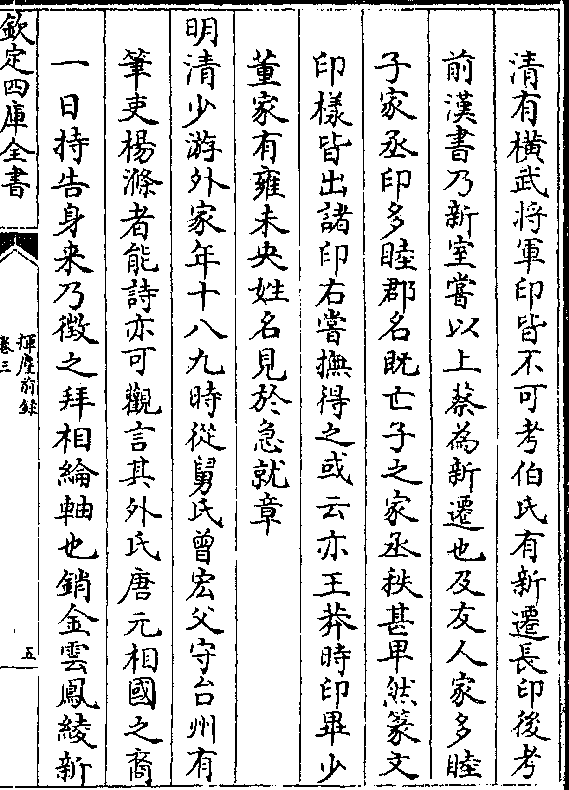 清有横武將軍印皆不可考伯氏有新遷長印後考
前漢書乃新室嘗以上蔡為新遷也及友人家多睦
子家丞印多睦郡名既亡子之家丞秩甚卑然篆文
印樣皆出諸印右嘗撫得之或云亦王莽時印畢少
董家有雍未央姓名見於急就章
明清少游外家年十八九時從舅氏曾宏父守台州有
筆吏楊滌者能詩亦可觀言其外氏唐元相國之裔
一日持告身来乃微之拜相綸軸也銷金雲鳳綾新
欽定四庫全書
揮麈前録
卷三
五